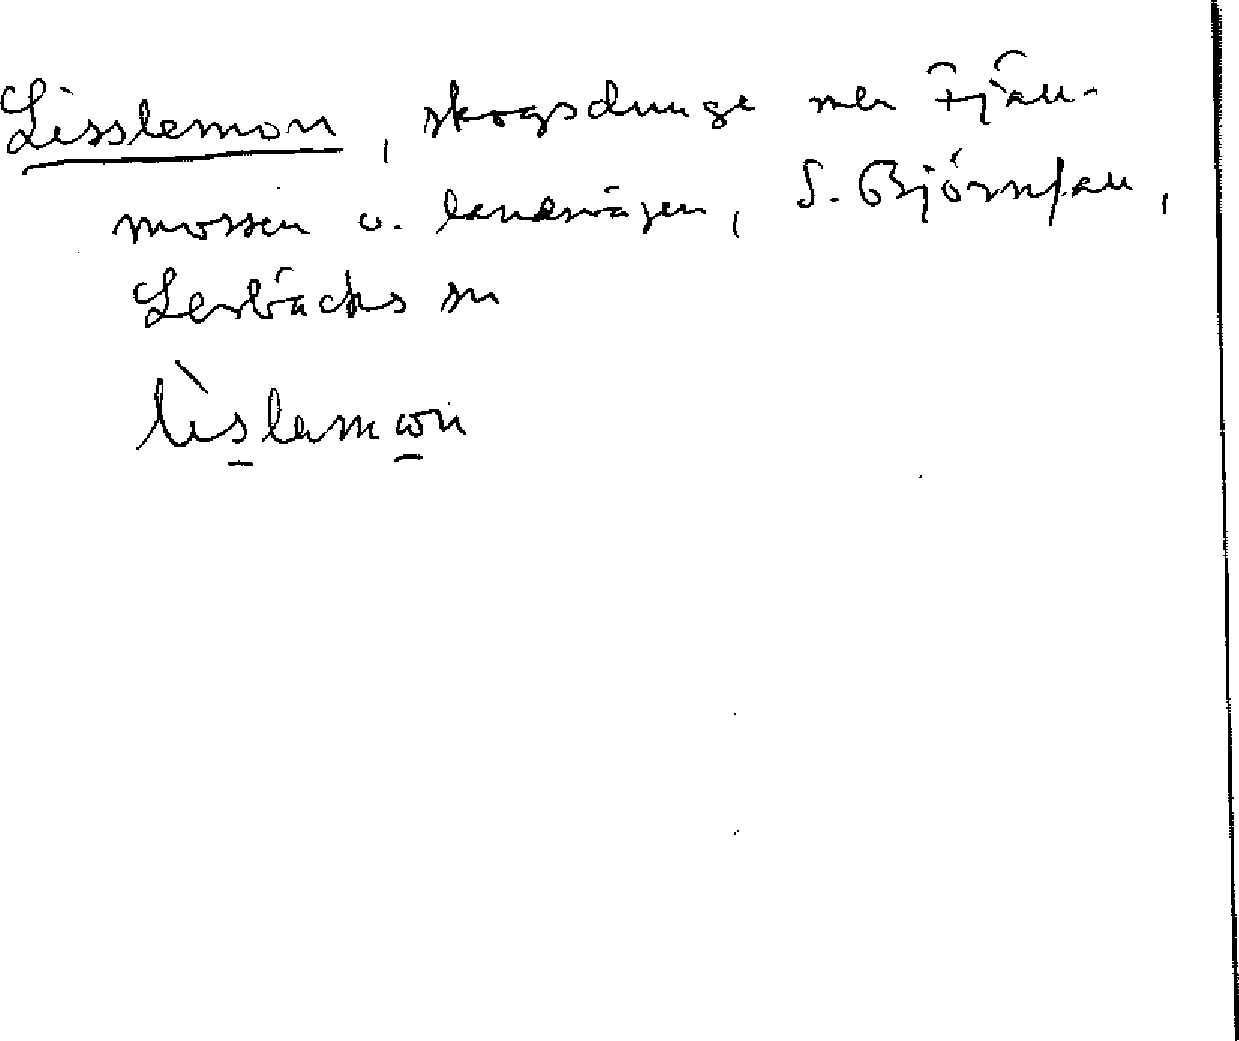 Lisslemon, skogsdunge mellan Tjäll-
mossen o. landsvägen, S. Björnfall,
Lerbäcks sn
lìslamωn